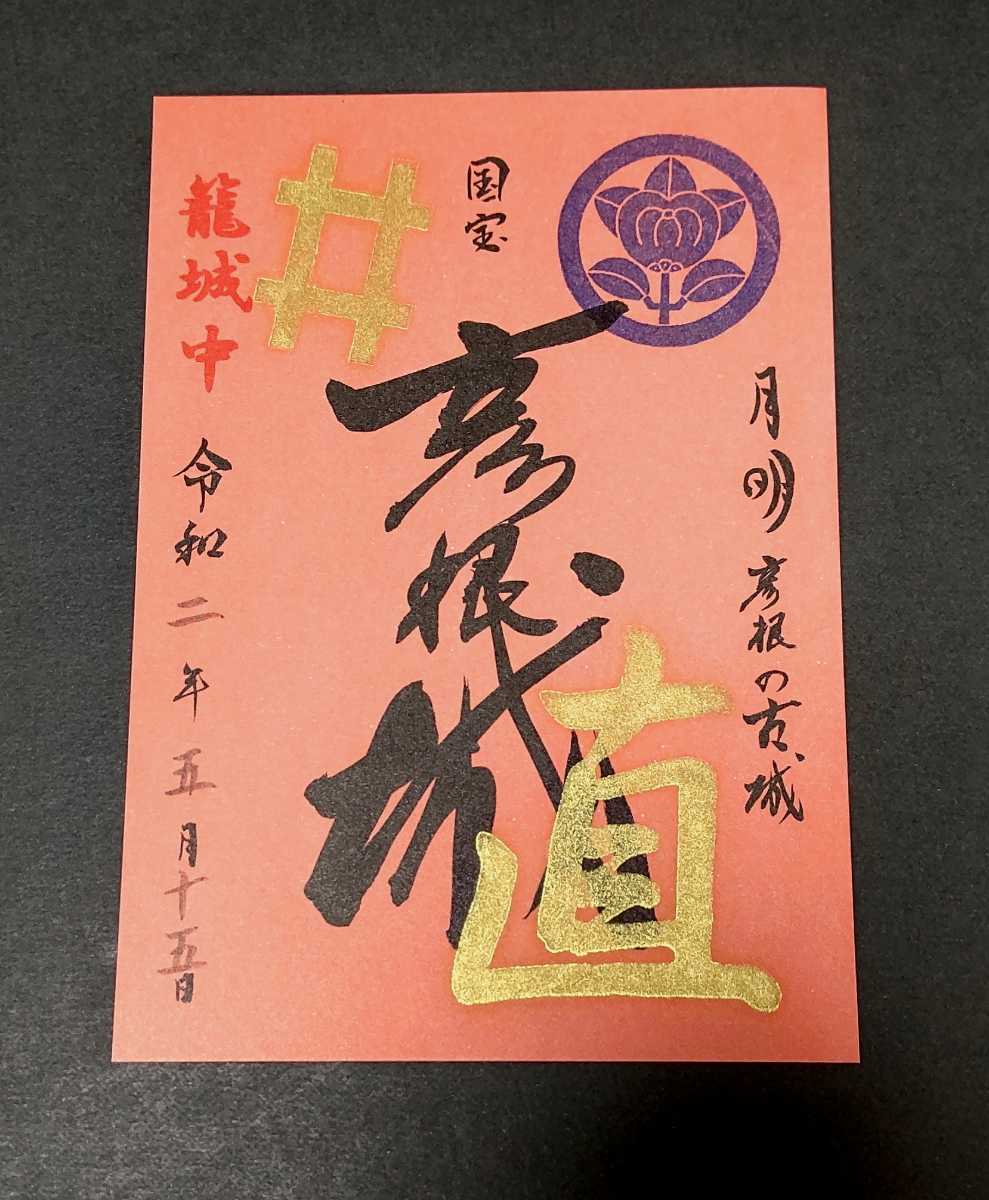 月明彦根の古城
国宝
彦根城
直
井
籠城中
令和二年五月十五日